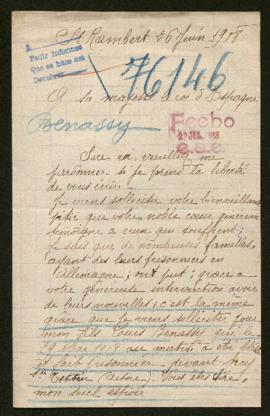 St Rambert 26 Juin 1918
Pedir informes
Que se han est
76146
A sa majesté le roi d'Espagne
Recbo
22 JUL. 1918
Benassy
Sire roi, veuillez me
pardonner si je prend la liberté
de vous écrire
Je viens solliciter votre bienveillante
pitié que votre noble cœur généreux
témoigne a ceux qui souffrent;
Je sais que de nombreuses familles
ayant des leurs prisonniers en
Allemagne, ont put; grace a
votre généreuse intervention avoir
de leurs nouvelles; c'est la même
grâce que je viens sollicité pour
mon fils Louis Benassy qui le
29 Mai 1918 au matin à été
et fait prisonnier devant
(Aisne). Vous êtes sire,
mon seul espoir